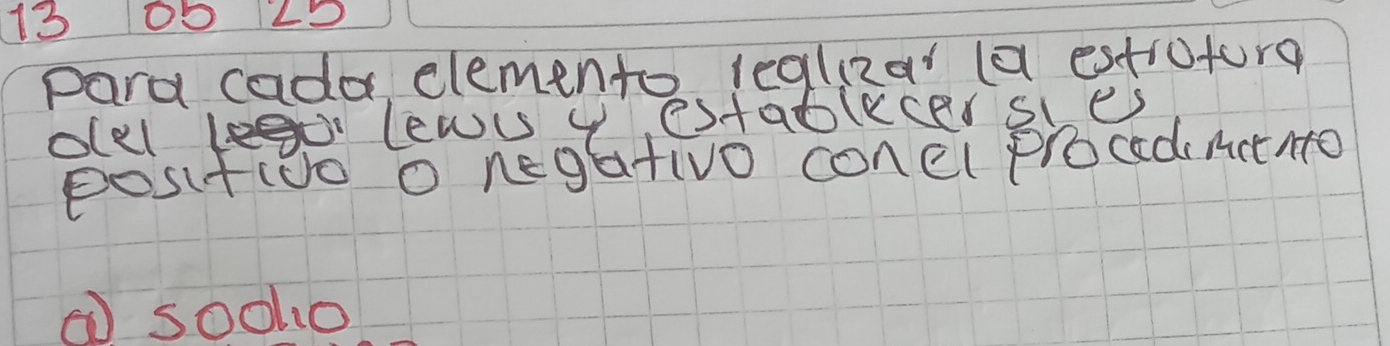 13 05 25
para cada elemento realizar la estrotura
del lewis y establecer si es
positivo o negativo con el procedimiento
a) sodio